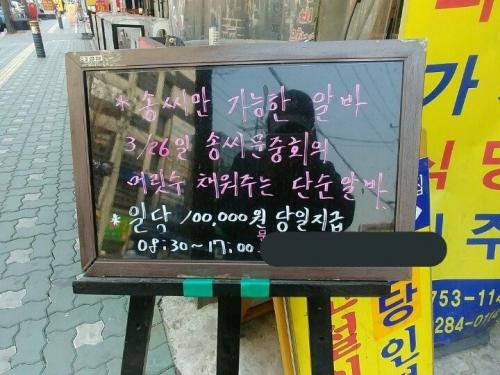 * 송씨만 가능한 알바
3/26일 송씨문중회의
머릿수 채워주는 단순알바
* 일당 100,000원 당일지급
08:30~17:00
가
식당
주
753-114
284-0114
당인